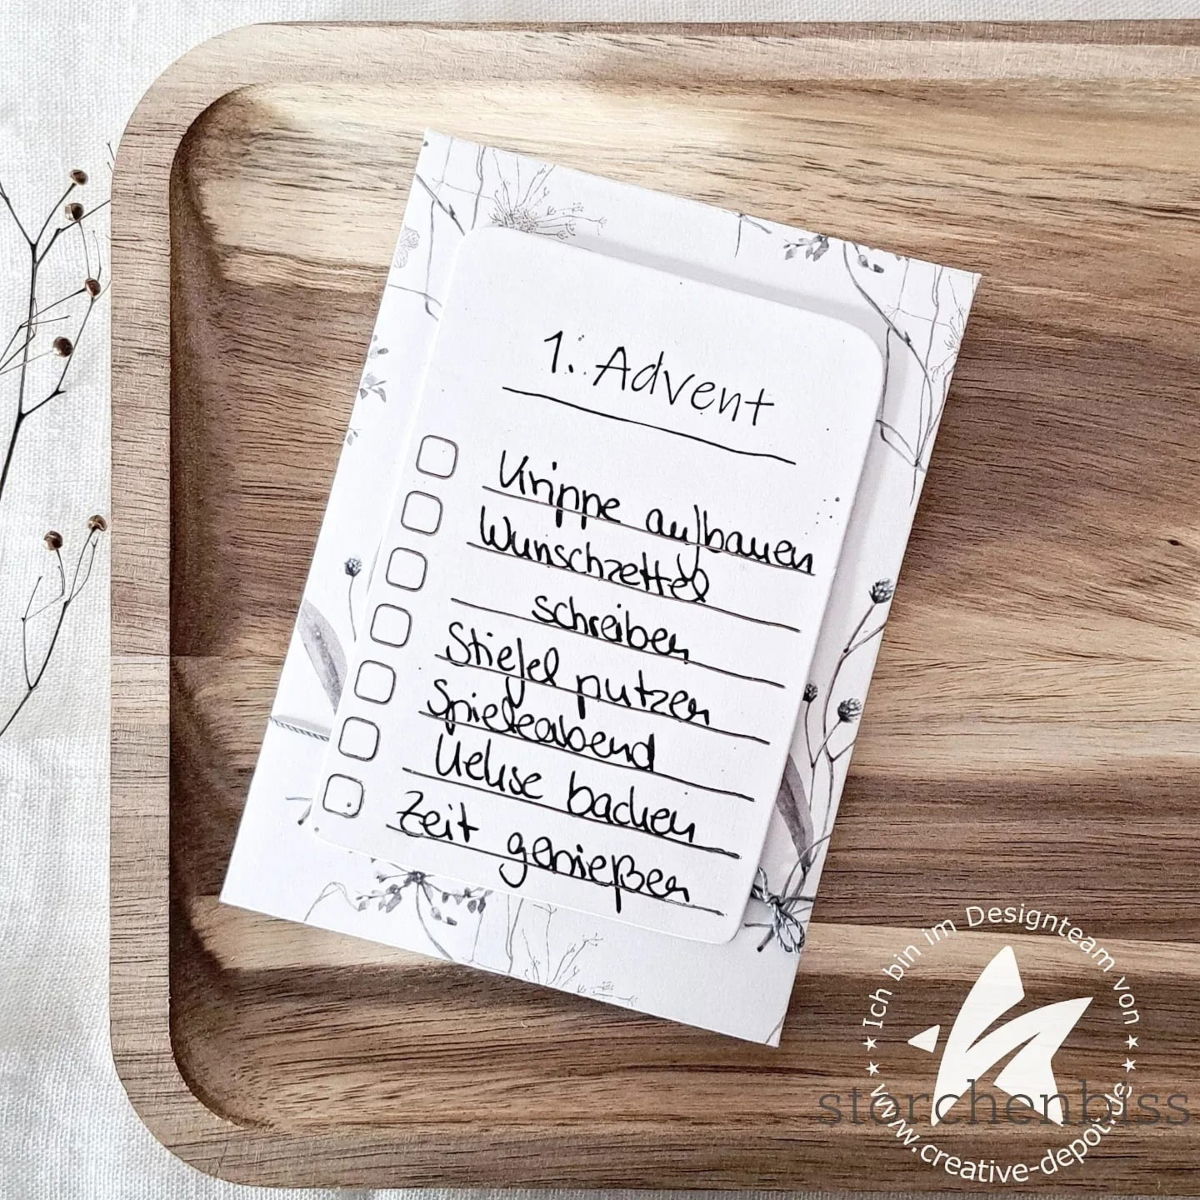 1. Advent
Krippe aufbauen
Wunschzettel
schreiben
Stiefel putzen
Spieleabend
Kekse backen
Zeit genießen
Ich bin im Designteam von
www.creative-depot.de
storchenbiss